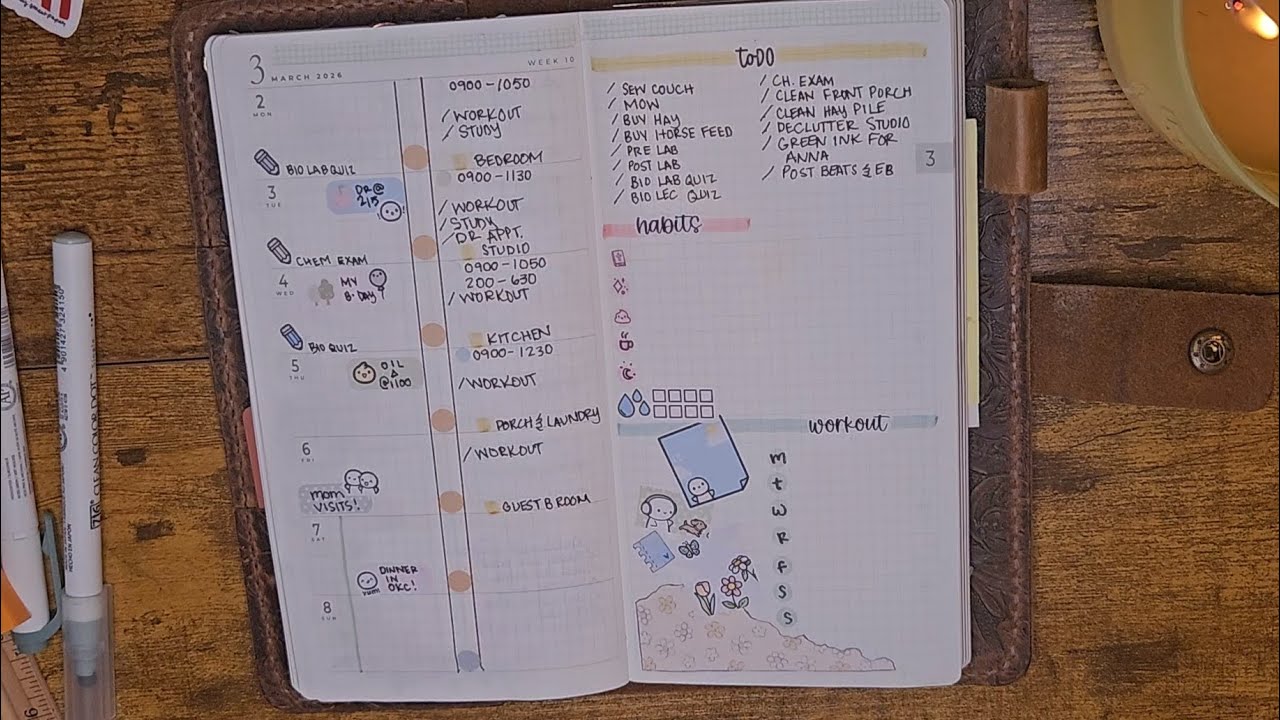 3 MARCH 2026
WEEK 10
2
MON
0900-1050
/ WORKOUT
/ STUDY
BIO LAB QUIZ
BEDROOM
3
TUE
DR @
215
0900-1130
/ WORKOUT
/ STUDY
/ DR APPT.
CHEM EXAM
STUDIO
4
WED
MY
B-DAY
0900-1050
200-630
/ WORKOUT
BIO QUIZ
KITCHEN
5
THU
OIL
Δ
@1100
0900-1230
/ WORKOUT
PORCH & LAUNDRY
6
FRI
/ WORKOUT
mom
VISITS!
GUEST B ROOM
7
SAT
DINNER
IN
OKC!
yum!
8
SUN
toDO
/ SEW COUCH
/ MOW
/ BUY HAY
/ BUY HORSE FEED
/ PRE LAB
/ POST LAB
/ BIO LAB QUIZ
/ BIO LEC QUIZ
/ CH. EXAM
/ CLEAN FRONT PORCH
/ CLEAN HAY PILE
/ DECLUTTER STUDIO
/ GREEN INK FOR
ANNA
/ POST BEATS & EB
3
habits
workout
m
t
w
R
f
S
S
ZIG CLEAN COLOR DOT
4901427324150